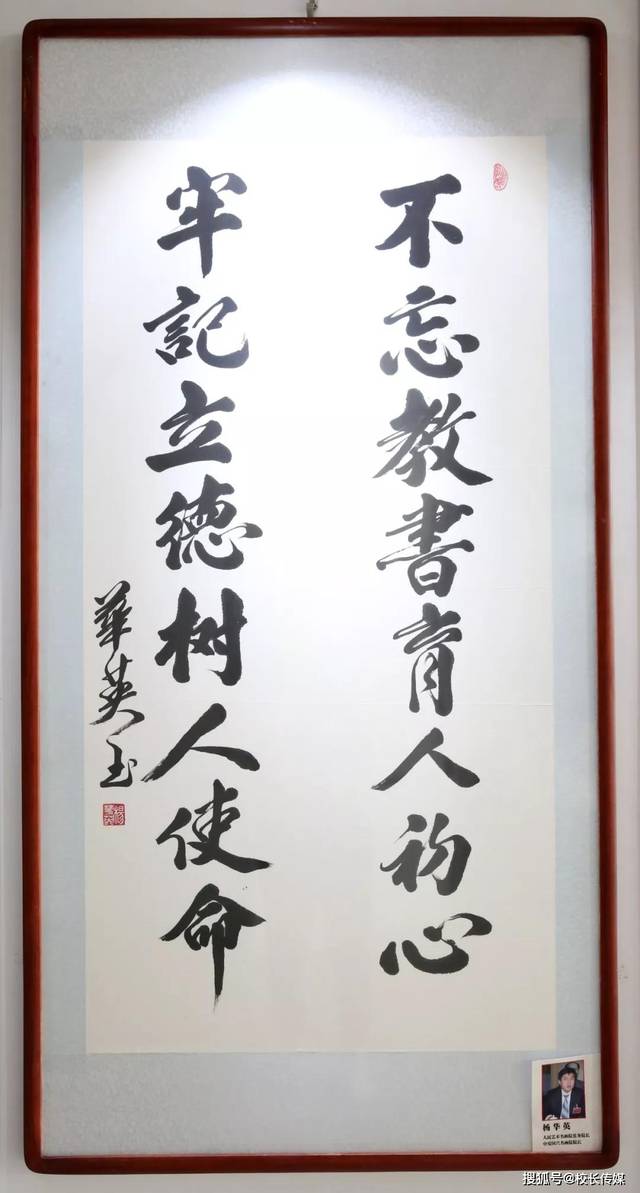 不忘教書育人初心
牢記立德树人使命
華英
杨华英
搜狐号@校长传媒